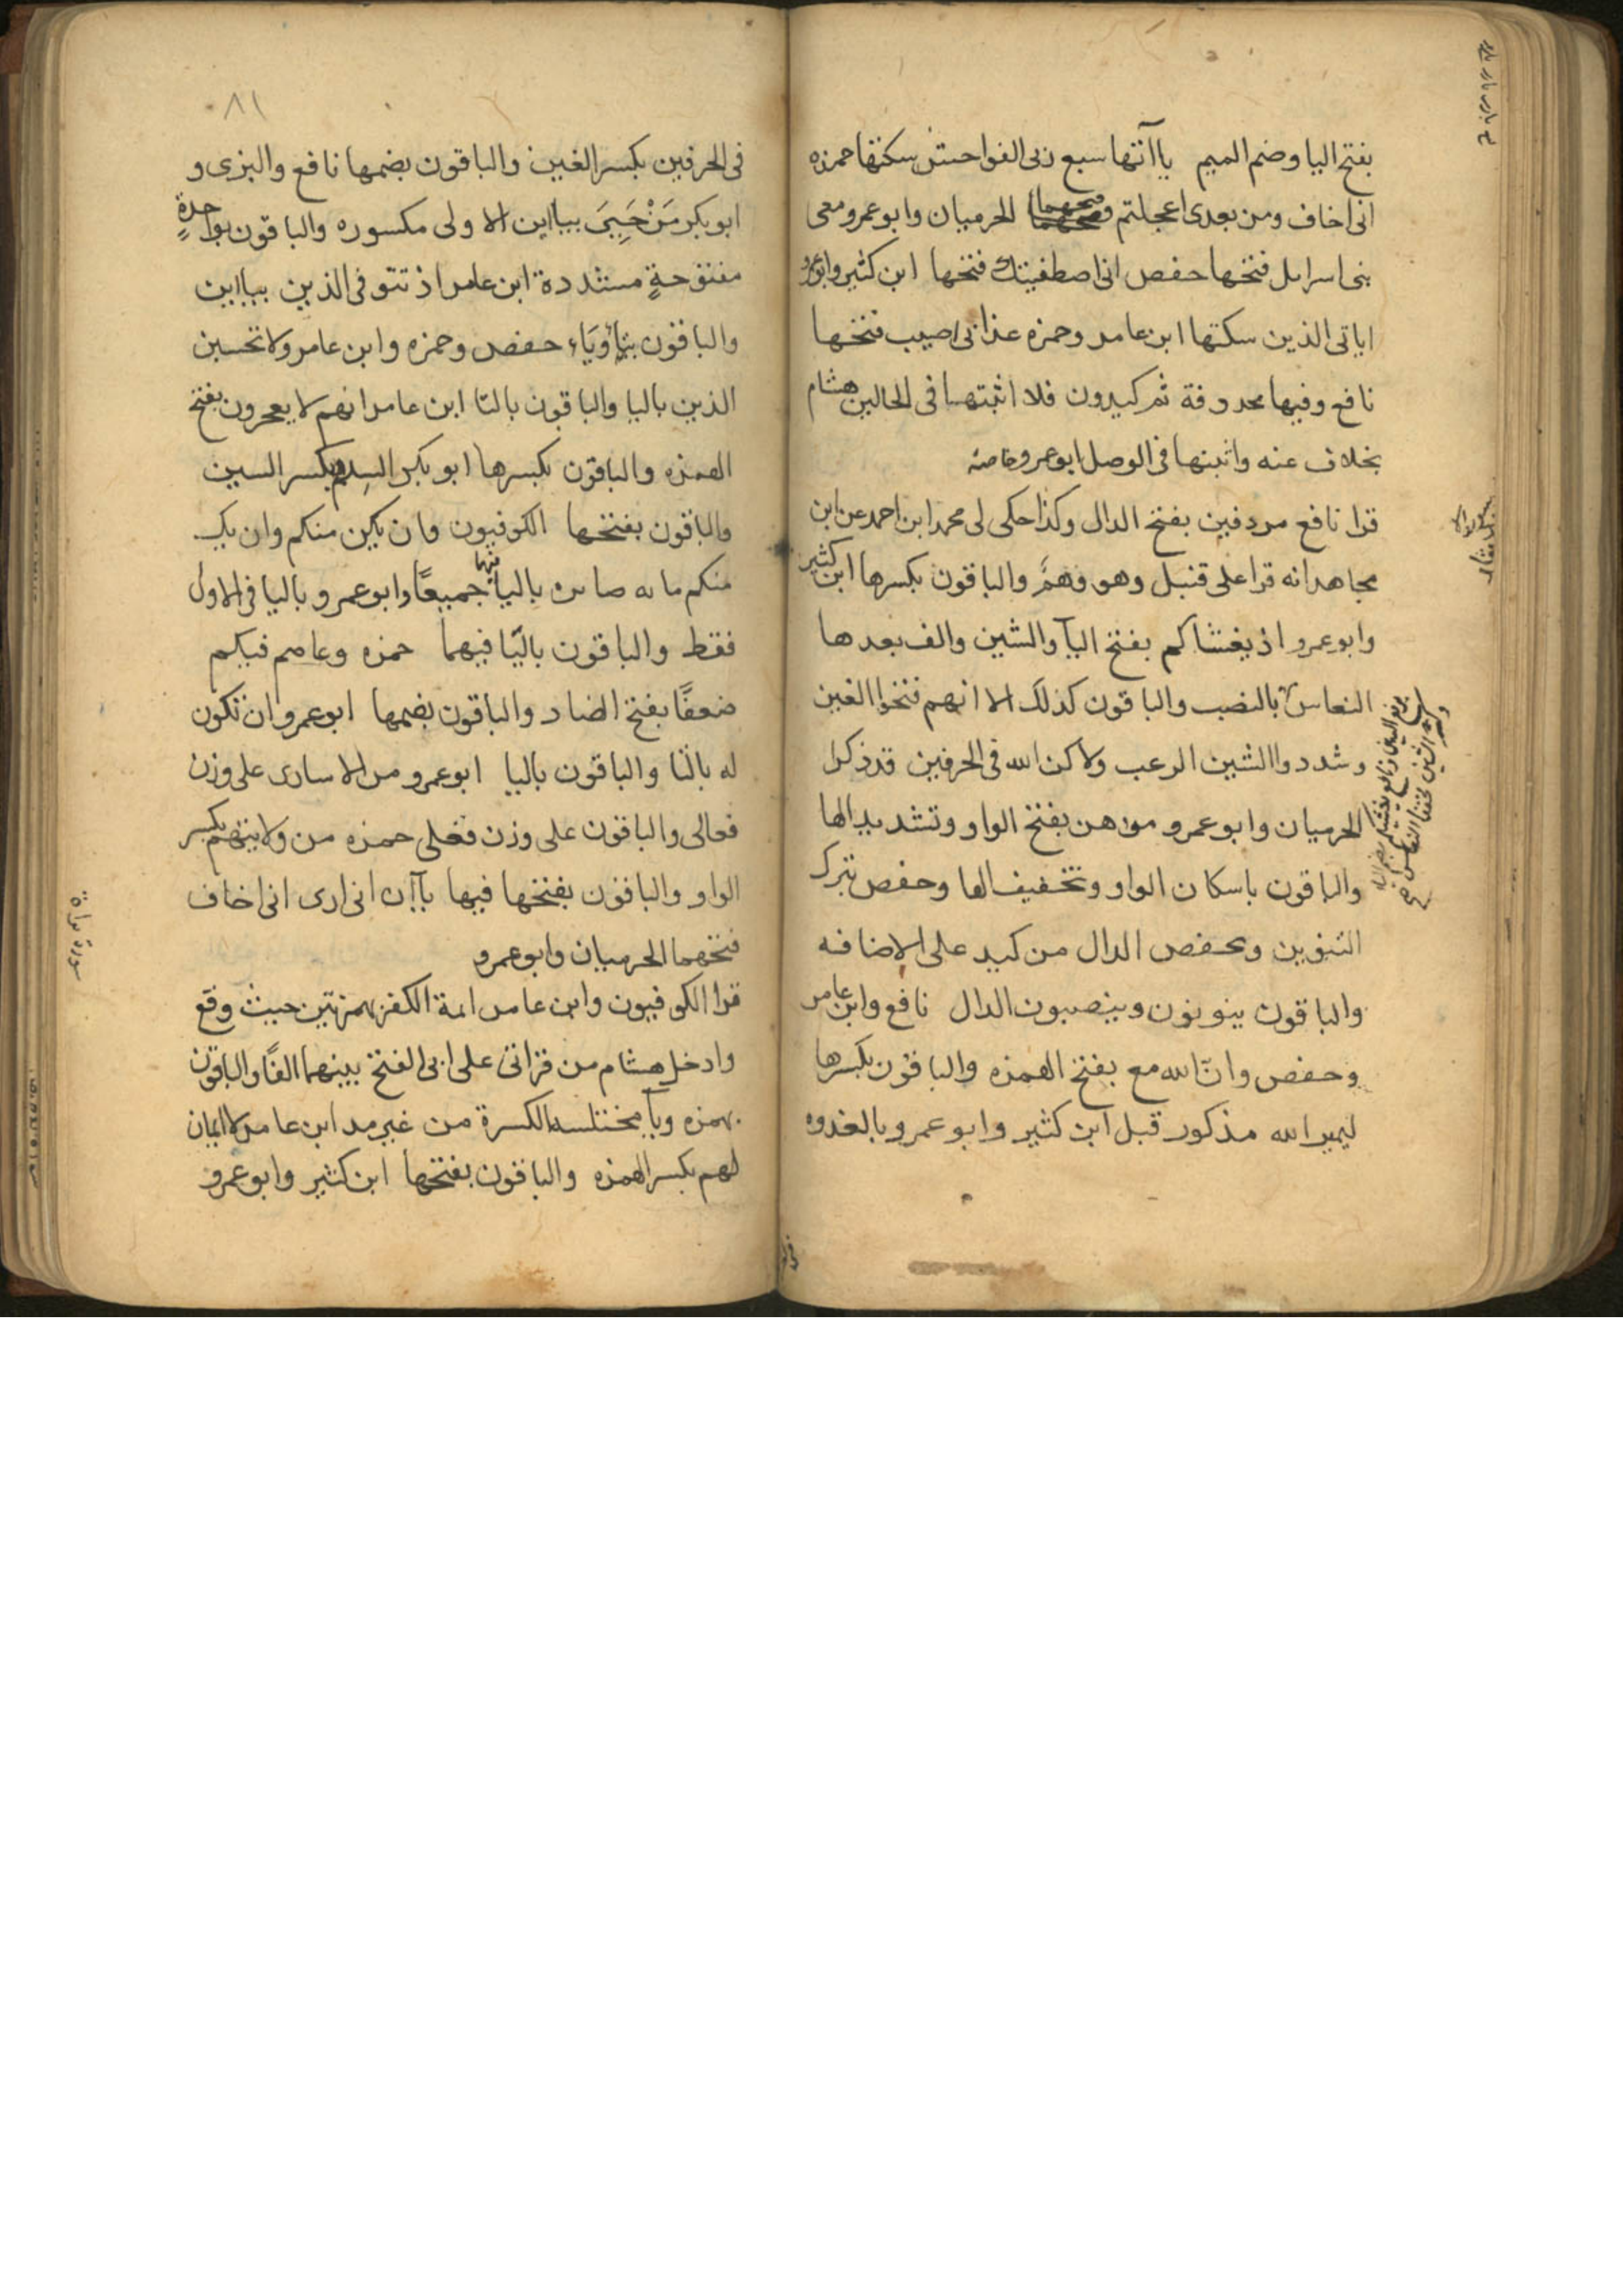 بفتح اليا وضم الميم ياآتها سبع ربى الفواحش سكنها حمزه
انى اخاف ومن بعدى اعجلتم فتحهما الحرميان وابو عمرو معى
بنى اسرايل فتحها حفص انى اصطفيتك فتحها ابن كثير وابو عمرو
اياتى الذين سكنها ابن عامر وحمزه عذابى اصيب فتحها
نافع وفيها محذوفة ثم كيدون فلا اثبتها فى الحالين هشام
بخلاف عنه واثبتها فى الوصل ابو عمرو خاصه
قرا نافع مردفين بفتح الدال وكذا حكى لى محمد ابن احمد عن ابن
مجاهد انه قرا على قنبل وهو وهم والباقون بكسرها ابن كثير
وابو عمرو اذ يغشاكم بفتح اليآ والشين والف بعدها
النعاس بالنصب والباقون كذلك الا انهم فتحوا الغين
وشددوا الشين الرعب ولاكن الله فى الحرفين قد ذكرا
الحرميان وابو عمرو موهن بفتح الواو وتشديد الها
والباقون باسكان الواو وتخفيف الها وحفص بترك
التنوين ويخفض الدال من كيد على الاضافه
والباقون ينونون وينصبون الدال نافع وابن عامر
وحفص وانّ الله مع بفتح الهمزه والباقون بكسرها
ليميز الله مذكور قبل ابن كثير وابو عمرو بالعدوه
٨١
فى الحرفين بكسر العين والباقون بضمها نافع والبزى و
ابو بكر مَنْ حَيِىَ بياين الاولى مكسوره والباقون بواحدةٍ
مفتوحةٍ مشددة ابن عامر اذ تتوفى الذين بتاين
والباقون بياءٍ وتاءٍ حفص وحمزه وابن عامر ولا تحسبن
الذين باليا والباقون بالتا ابن عامر انهم لا يعجزون بفتح
الهمزه والباقون بكسرها ابو بكر السِلم بكسر السين
والباقون بفتحها الكوفيون وان يكن منكم وان يكن
منكم مايه صابره باليا فيهما جميعًا وابو عمرو باليا فى الاول
فقط والباقون بالتّا فيهما حمزه وعاصم فيكم
ضعفًا بفتح الضاد والباقون بضمها ابو عمرو ان تكون
له بالتا والباقون باليا ابو عمرو من الاسارى على وزن
فعالى والباقون على وزن فعلى حمزه من ولايتهم بكسر
الواو والباقون بفتحها فيها ياآن انى ارى انى اخاف
فتحهما الحرميان وابو عمرو
سورة براة
قرا الكوفيون وابن عامر ايمة الكفر بهمزتين حيث وقع
وادخل هشام من قراتى على ابى الفتح بينهما الفًا والباقون
بهمزه ويآ مختلسه الكسرة من غير مد ابن عامر لا ايمان
لهم بكسر الهمزه والباقون بفتحها ابن كثير وابو عمرو